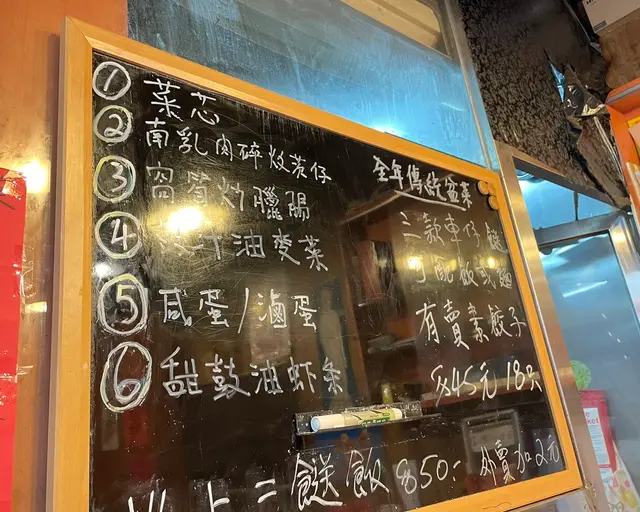 ① 菜芯
② 南乳肉碎炆茨仔
③ 炒臘腸
④ 汁油麥菜
⑤ 咸蛋/滷蛋
⑥ 甜豉油虾条
全年傳統盆菜
三款車仔
可配飯或麵
有賣素餃子
45元 18只
以上二餸飯 $50.-
外賣加2元